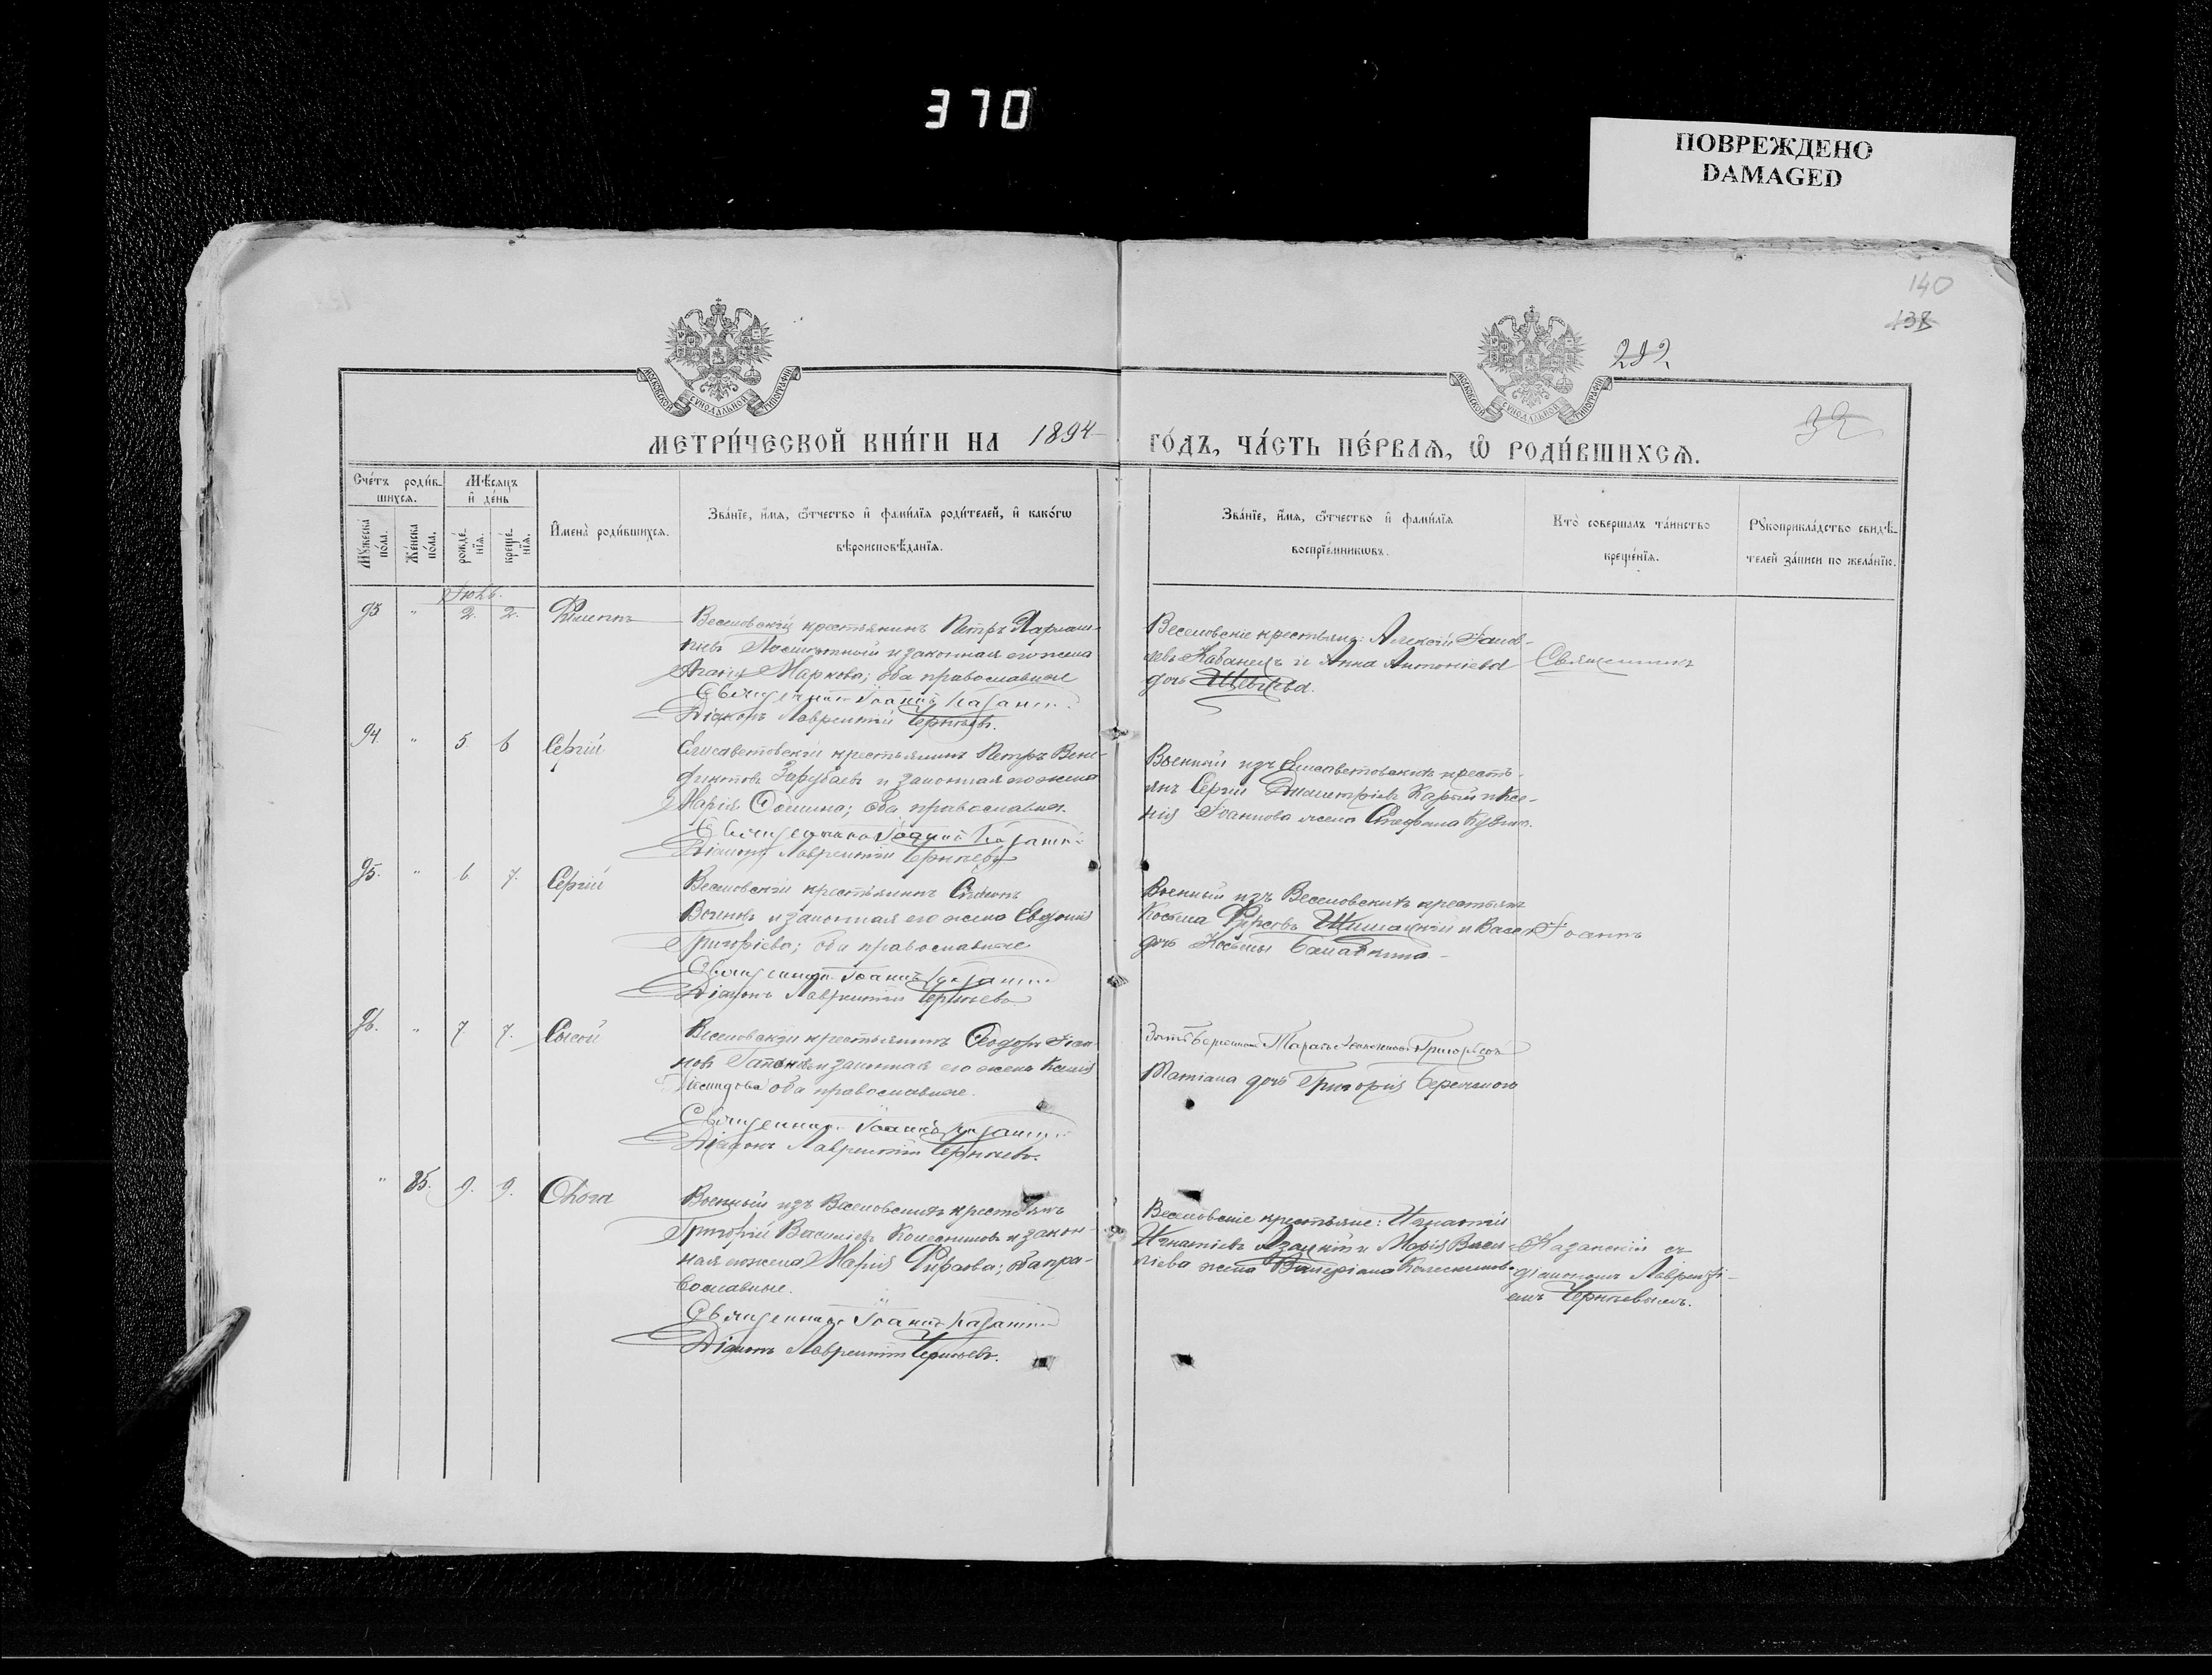 370
ПОВРЕЖДЕНО
DAMAGED
140
138
212
32
МОСКОВСКОЙ СУНОДАЛЬНОЙ ТИПОГРАФІИ
МОСКОВСКОЙ СУНОДАЛЬНОЙ ТИПОГРАФІИ
МЕТРИ́ЧЕСКОЙ КНИ́ГИ НА 1894
ГО́ДЪ, ЧА́СТЬ ПЕ́РВАѦ, Ѡ҆ РОДИ́ВШИХСѦ.
Сче́тъ роди́в-
шихсѧ.
Мꙋ́жеска по́ла.
Же́нска по́ла.
Мѣ́сѧцъ
и҆ де́нь
рожде́-
нїѧ.
креще́-
нїѧ.
И҆мена̀ роди́вшихсѧ.
Зва́нїе, и҆́мѧ, ѻ҆́тчество и҆ фами́лїѧ роди́телей, и҆ како́гѡ
вѣроисповѣ́данїѧ.
Зва́нїе, и҆́мѧ, ѻ҆́тчество и҆ фами́лїѧ
воспрїе́мникѡвъ.
Кто̀ соверша́лъ та́инство
креще́нїѧ.
Рꙋкоприкла́дство свидѣ́-
телей за́писи по жела́нїю.
Іюль.
93 " 2. 2. Филиппъ
Веселовскій крестьянинъ Петръ
и законная его жена
Маркова; оба православные
Священникъ Іоаннъ Казанскій
Діаконъ Лаврентій Черняевъ.
Веселовскіе крестьяне: Алексій
Кабанецъ и Анна Антоніева
дочь
Священникъ
94. " 5 6 Сергій
Елисаветовскій крестьянинъ Петръ Вене-
диктовъ Зарубаевъ и законная его жена
Марія Ѳомина; оба православные.
Священникъ Іоаннъ Казанскій
Діаконъ Лаврентій Черняевъ
Военный изъ Елисаветовскихъ кресть-
янъ Сергій Димитріевъ Карый и Ксе-
нія Іоаннова жена Стефана
95. " 6. 7. Сергій
Веселовскій крестьянинъ
и законная его жена Евдокія
Григоріева; оба православные
Священникъ Іоаннъ Казанскій
Діаконъ Лаврентій Черняевъ
Военный изъ Веселовскихъ крестьянъ
Косьма Фирсовъ
дочь Косьмы
Іоаннъ
96. " 7. 7. Сысой
Веселовскій крестьянинъ Ѳеодоръ Іоан-
новъ и законная его жена Ксенія
оба православные.
Священникъ Іоаннъ Казанскій
Діаконъ Лаврентій Черняевъ.
Тарасъ
Татіана дочь Григорія
" 85. 9. 9. Ольга
Военный изъ Веселовскихъ крестьянъ
Григорій Василіевъ Колесниковъ и закон-
ная его жена Марія Фирсова; оба пра-
вославные.
Священникъ Іоаннъ Казанскій
Діаконъ Лаврентій Черняевъ.
Веселовскіе крестьяне: Игнатій
Игнатіевъ и Марія Васи-
ліева жена Валеріана Колесникова
Казанскій съ
діакономъ Лавренті-
емъ Черняевымъ.